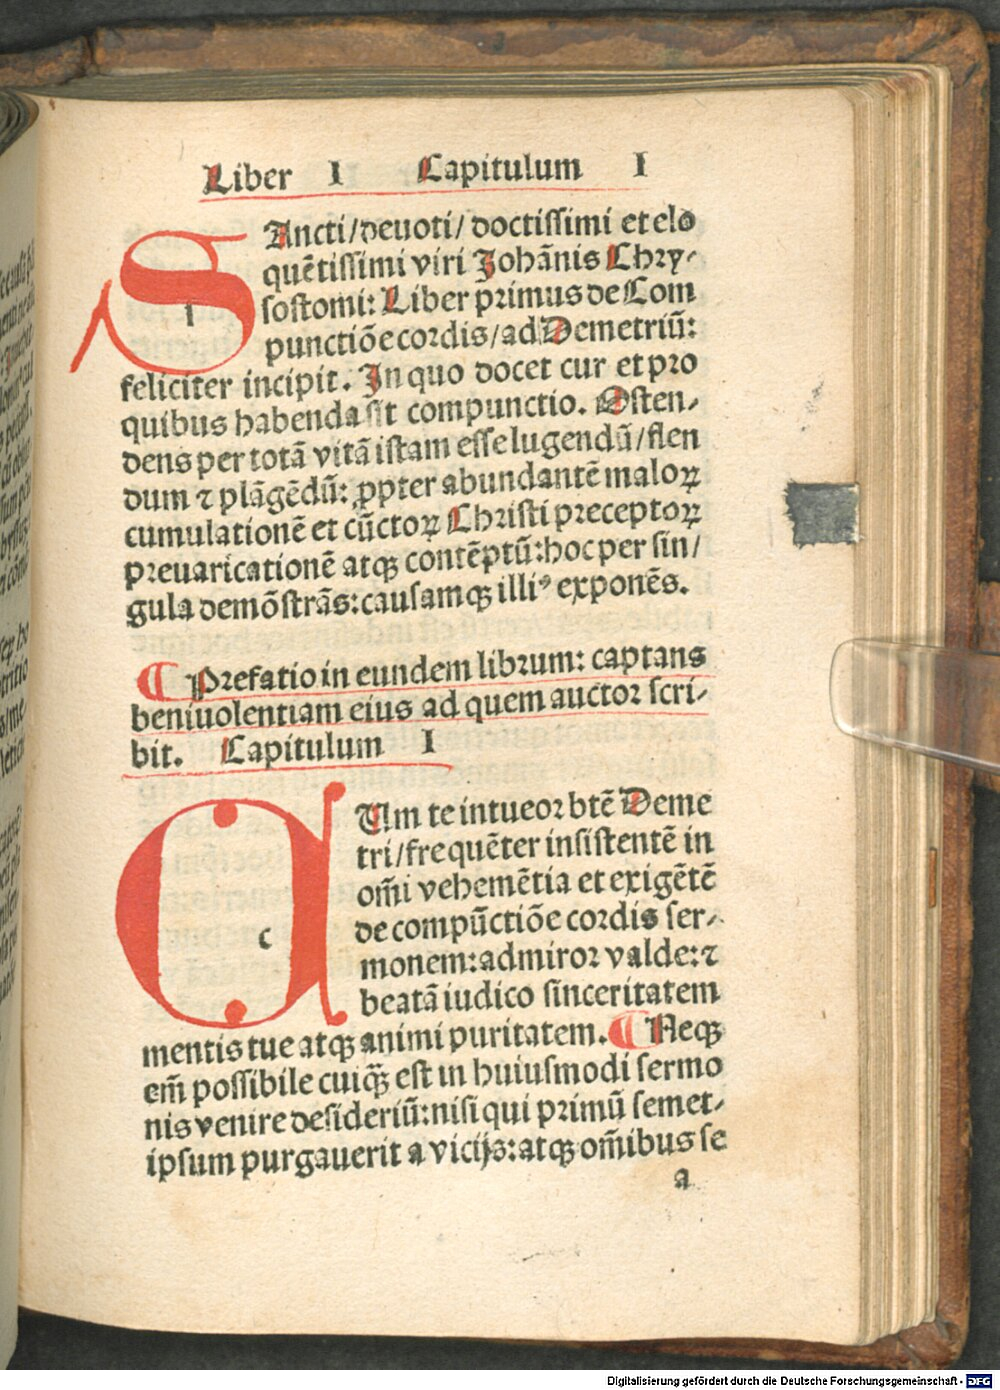 Liber I Capitulum I
SAncti/deuoti/ doctissimi et elo
quētissimi viri Johānis Chry-
sostomi: Liber primus de Com
punctiōe cordis/ad Demetriū:
feliciter incipit. In quo docet cur et pro
quibus habenda sit compunctio. Osten-
dens per totā vitā istam esse lugendū/flen
dum ⁊ plāgēdū: ꝓpter abundantē maloꝝ
cumulationē et cūctoꝝ Christi preceptoꝝ
preuaricationē atqꝫ contēptū:hoc per sin/
gula demōstrās:causamqꝫ illiꝰ exponēs.
¶ Prefatio in eundem librum: captans
beniuolentiam eius ad quem auctor scri-
bit. Capitulum I
CUm te intueor btē Deme
tri/frequēter insistentē in
om̄i vehemētia et exigētē
de compūctiōe cordis ser-
monem:admiror valde:⁊
beatā iudico sinceritatem
mentis tue atqꝫ animi puritatem. ¶ Neqꝫ
em̄ possibile cuiqꝫ̄ est in huiusmodi sermo
nis venire desideriū:nisi qui primū semet-
ipsum purgauerit a vicijs:atqꝫ om̄ibus se
a
Digitalisierung gefördert durch die Deutsche Forschungsgemeinschaft - DFG